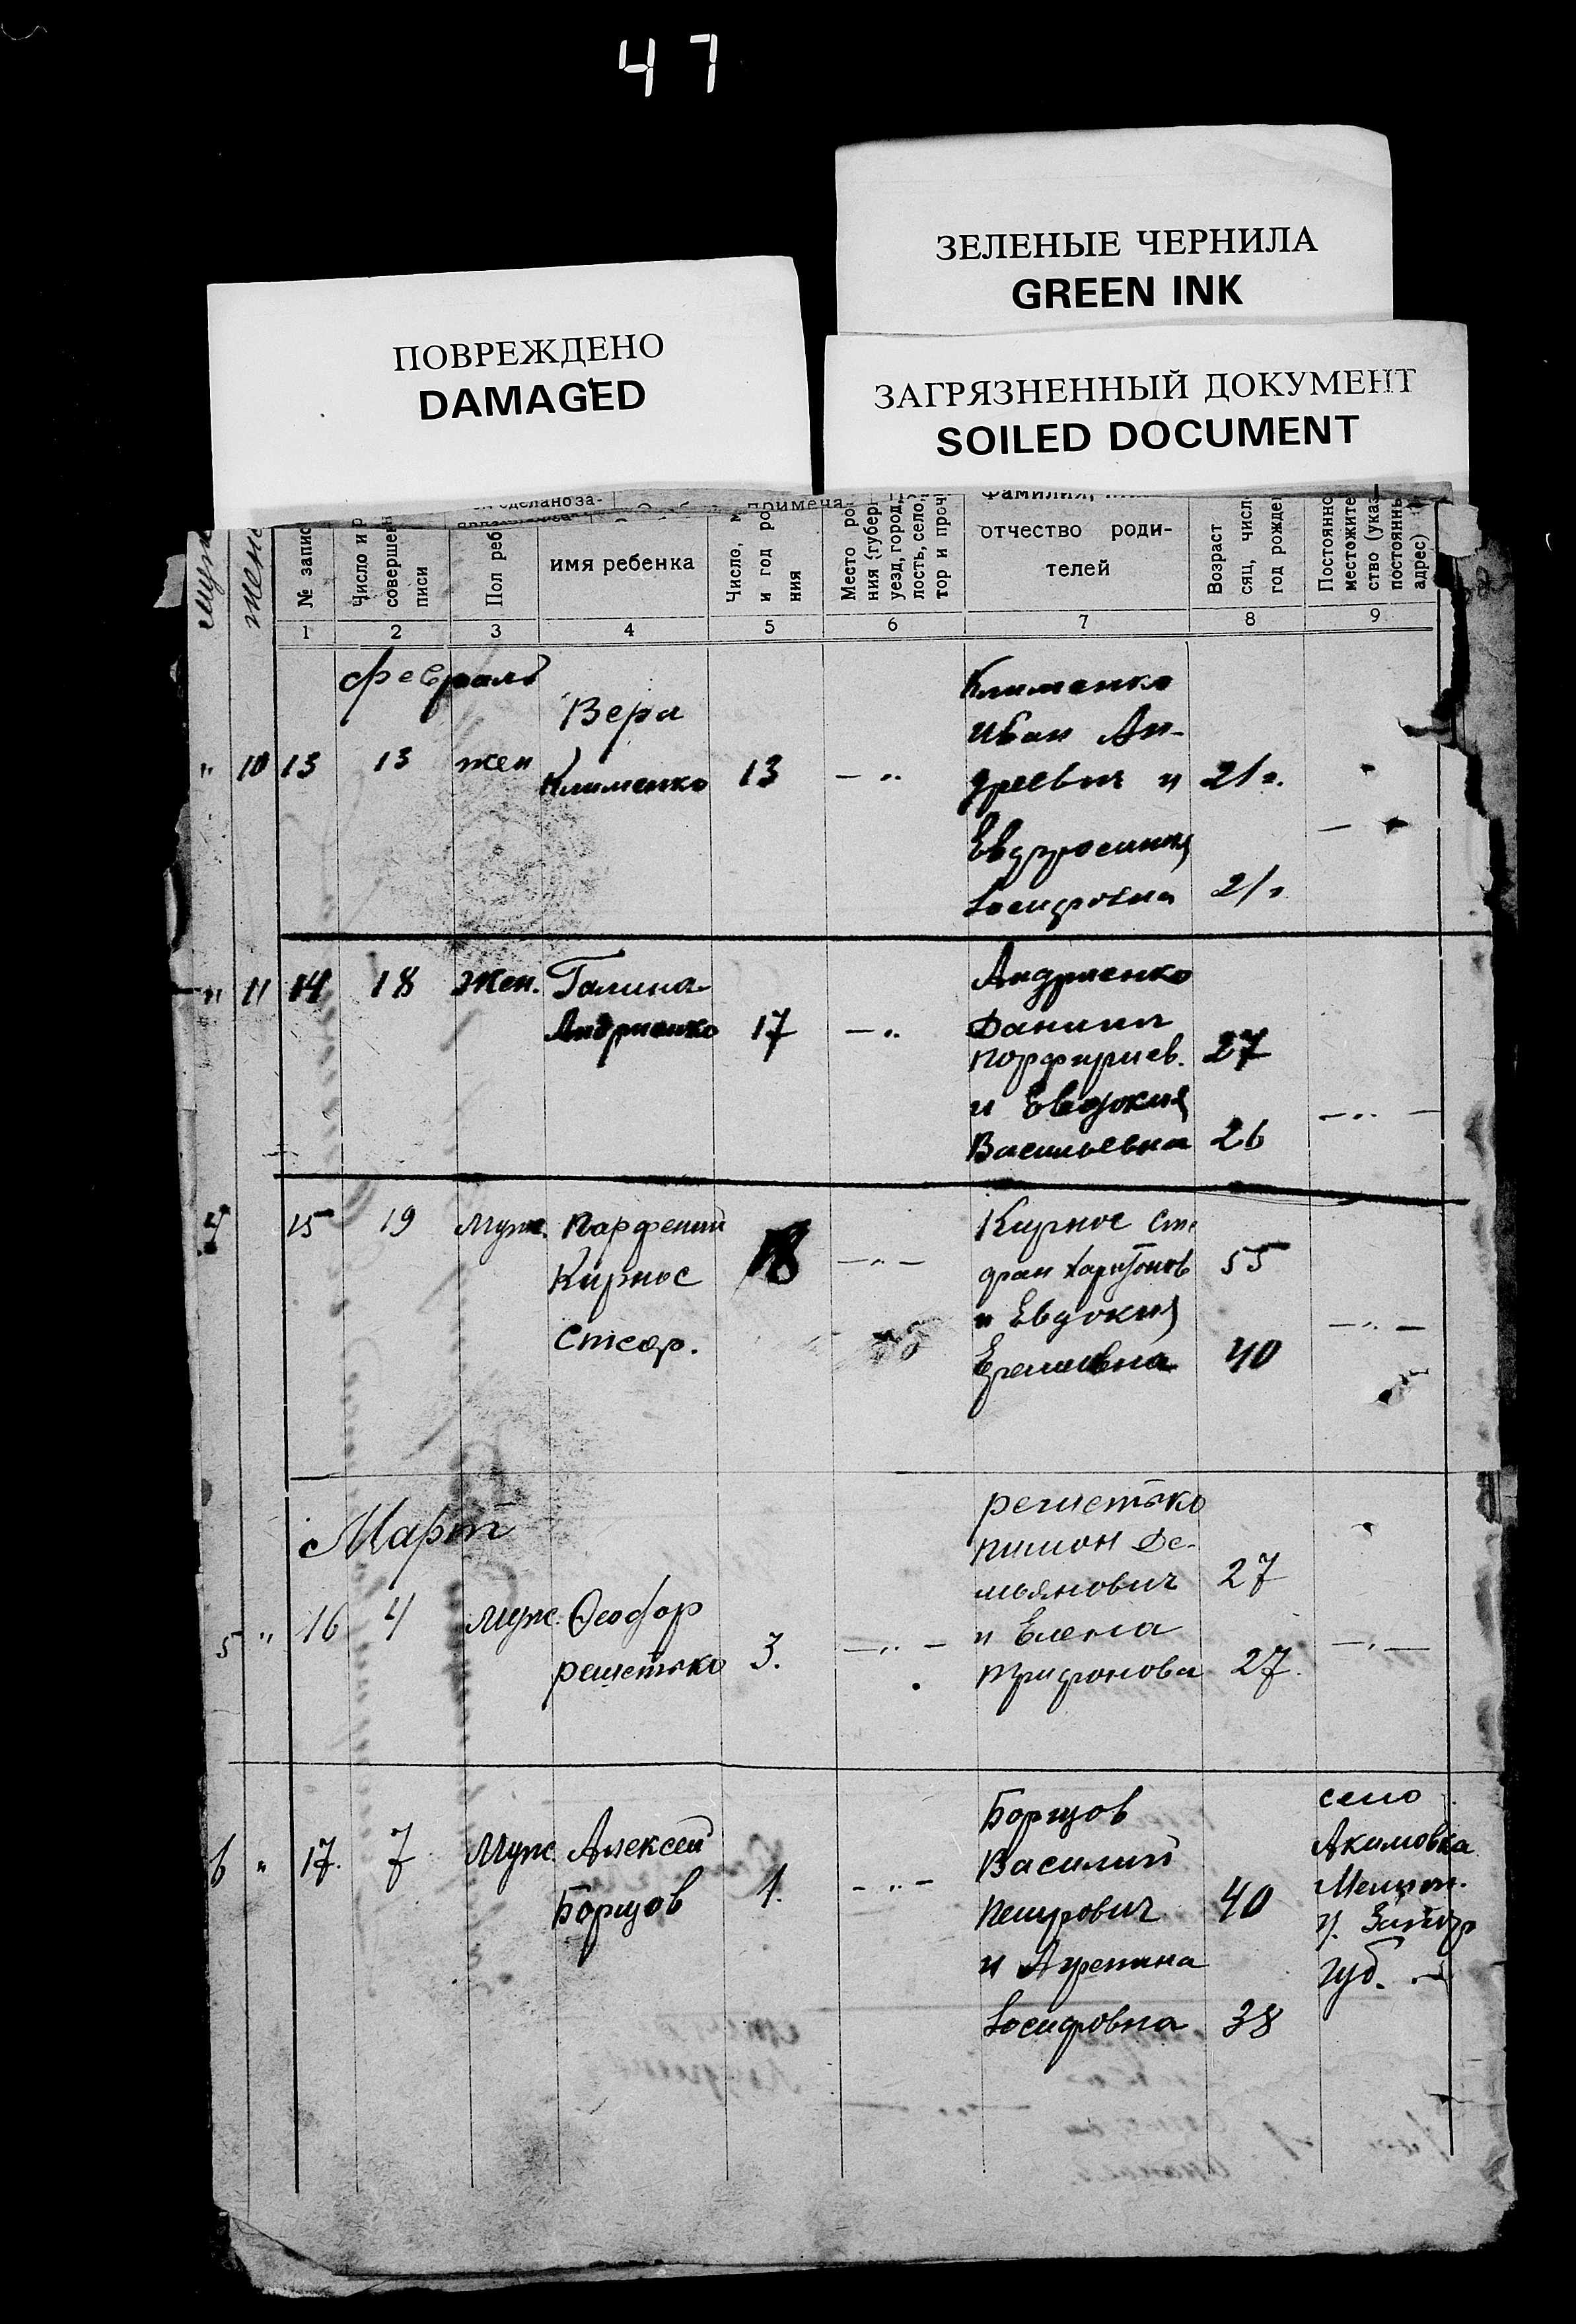 47
ЗЕЛЕНЫЕ ЧЕРНИЛА
GREEN INK
ПОВРЕЖДЕНО
DAMAGED
ЗАГРЯЗНЕННЫЙ ДОКУМЕНТ
SOILED DOCUMENT
№ запис
Число и р
совершен
писи
Пол реб
имя ребенка
Число, м
и год ро
ния
Место ро
ния (губер
уезд, город,
лость, село,
тор и проч
отчество роди-
телей
Возраст
сяц, числ
год рожде
Постоянно
местожите
ство (указ
постоянны
адрес)
1 2 3 4 5 6 7 8 9
февраль
" 10 13 13 жен
Вера
Клименко
13
— "
Клименко
Иван Ан-
дреевич и 21 г.
Евдросиния
Іосифовна 21 г
" 11 14 18 жен.
Галина
Андриенко
17
— "
Андриенко
Даниил
Порфириев. 27
и Евдокия
Васильевна 26
— " —
4 15 19 Муж.
Парфений
Кирнос
Стеф.
18
— " —
Кирнос Сте
фан Харитонов 55
и Евдокия
40
— " —
Март
5 " 16 4 муж.
Феофор
решетько
3.
— " —
решетько
пимон Де-
мьянович 27
и Елена
Трифонова 27.
— " —
6 " 17. 7 Муж.
Алексей
Борцов
1.
— " —
Борцов
Василий
Петрович 40
и Агрепина
Іосифовна 38
село
Акимовка
Мелитоп.
у. Запор
губ.